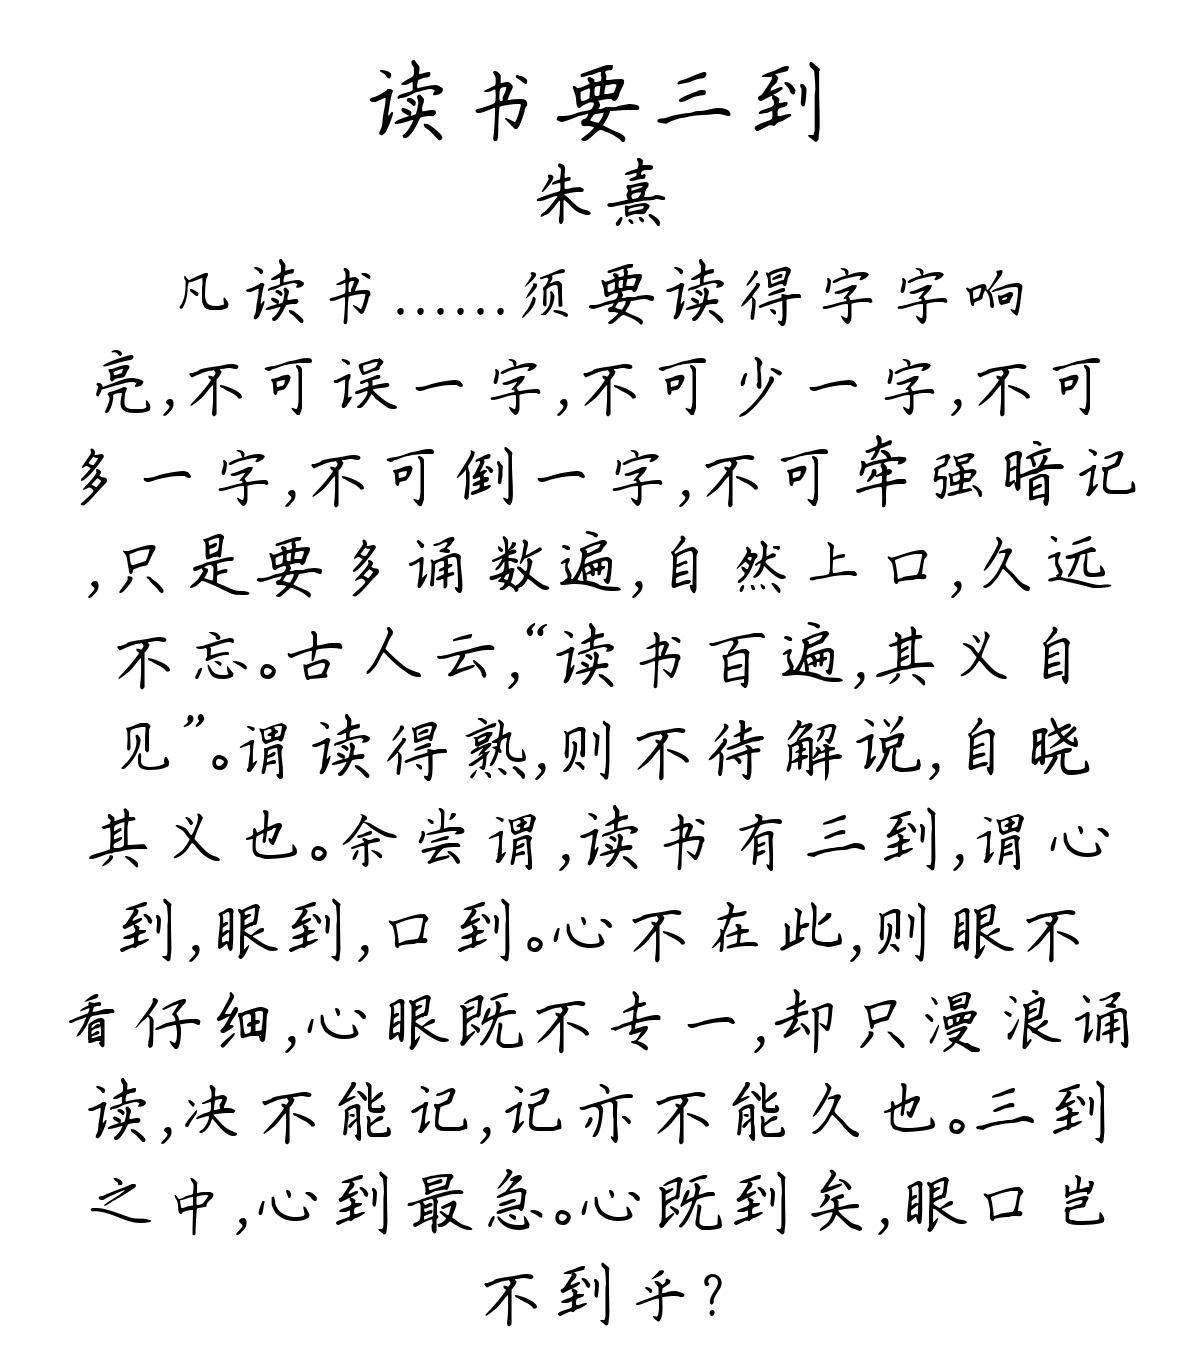 读书要三到
朱熹
凡读书……须要读得字字响
亮,不可误一字,不可少一字,不可
多一字,不可倒一字,不可牵强暗记
,只是要多诵数遍,自然上口,久远
不忘。古人云,“读书百遍,其义自
见”。谓读得熟,则不待解说,自晓
其义也。余尝谓,读书有三到,谓心
到,眼到,口到。心不在此,则眼不
看仔细,心眼既不专一,却只漫浪诵
读,决不能记,记亦不能久也。三到
之中,心到最急。心既到矣,眼口岂
不到乎?